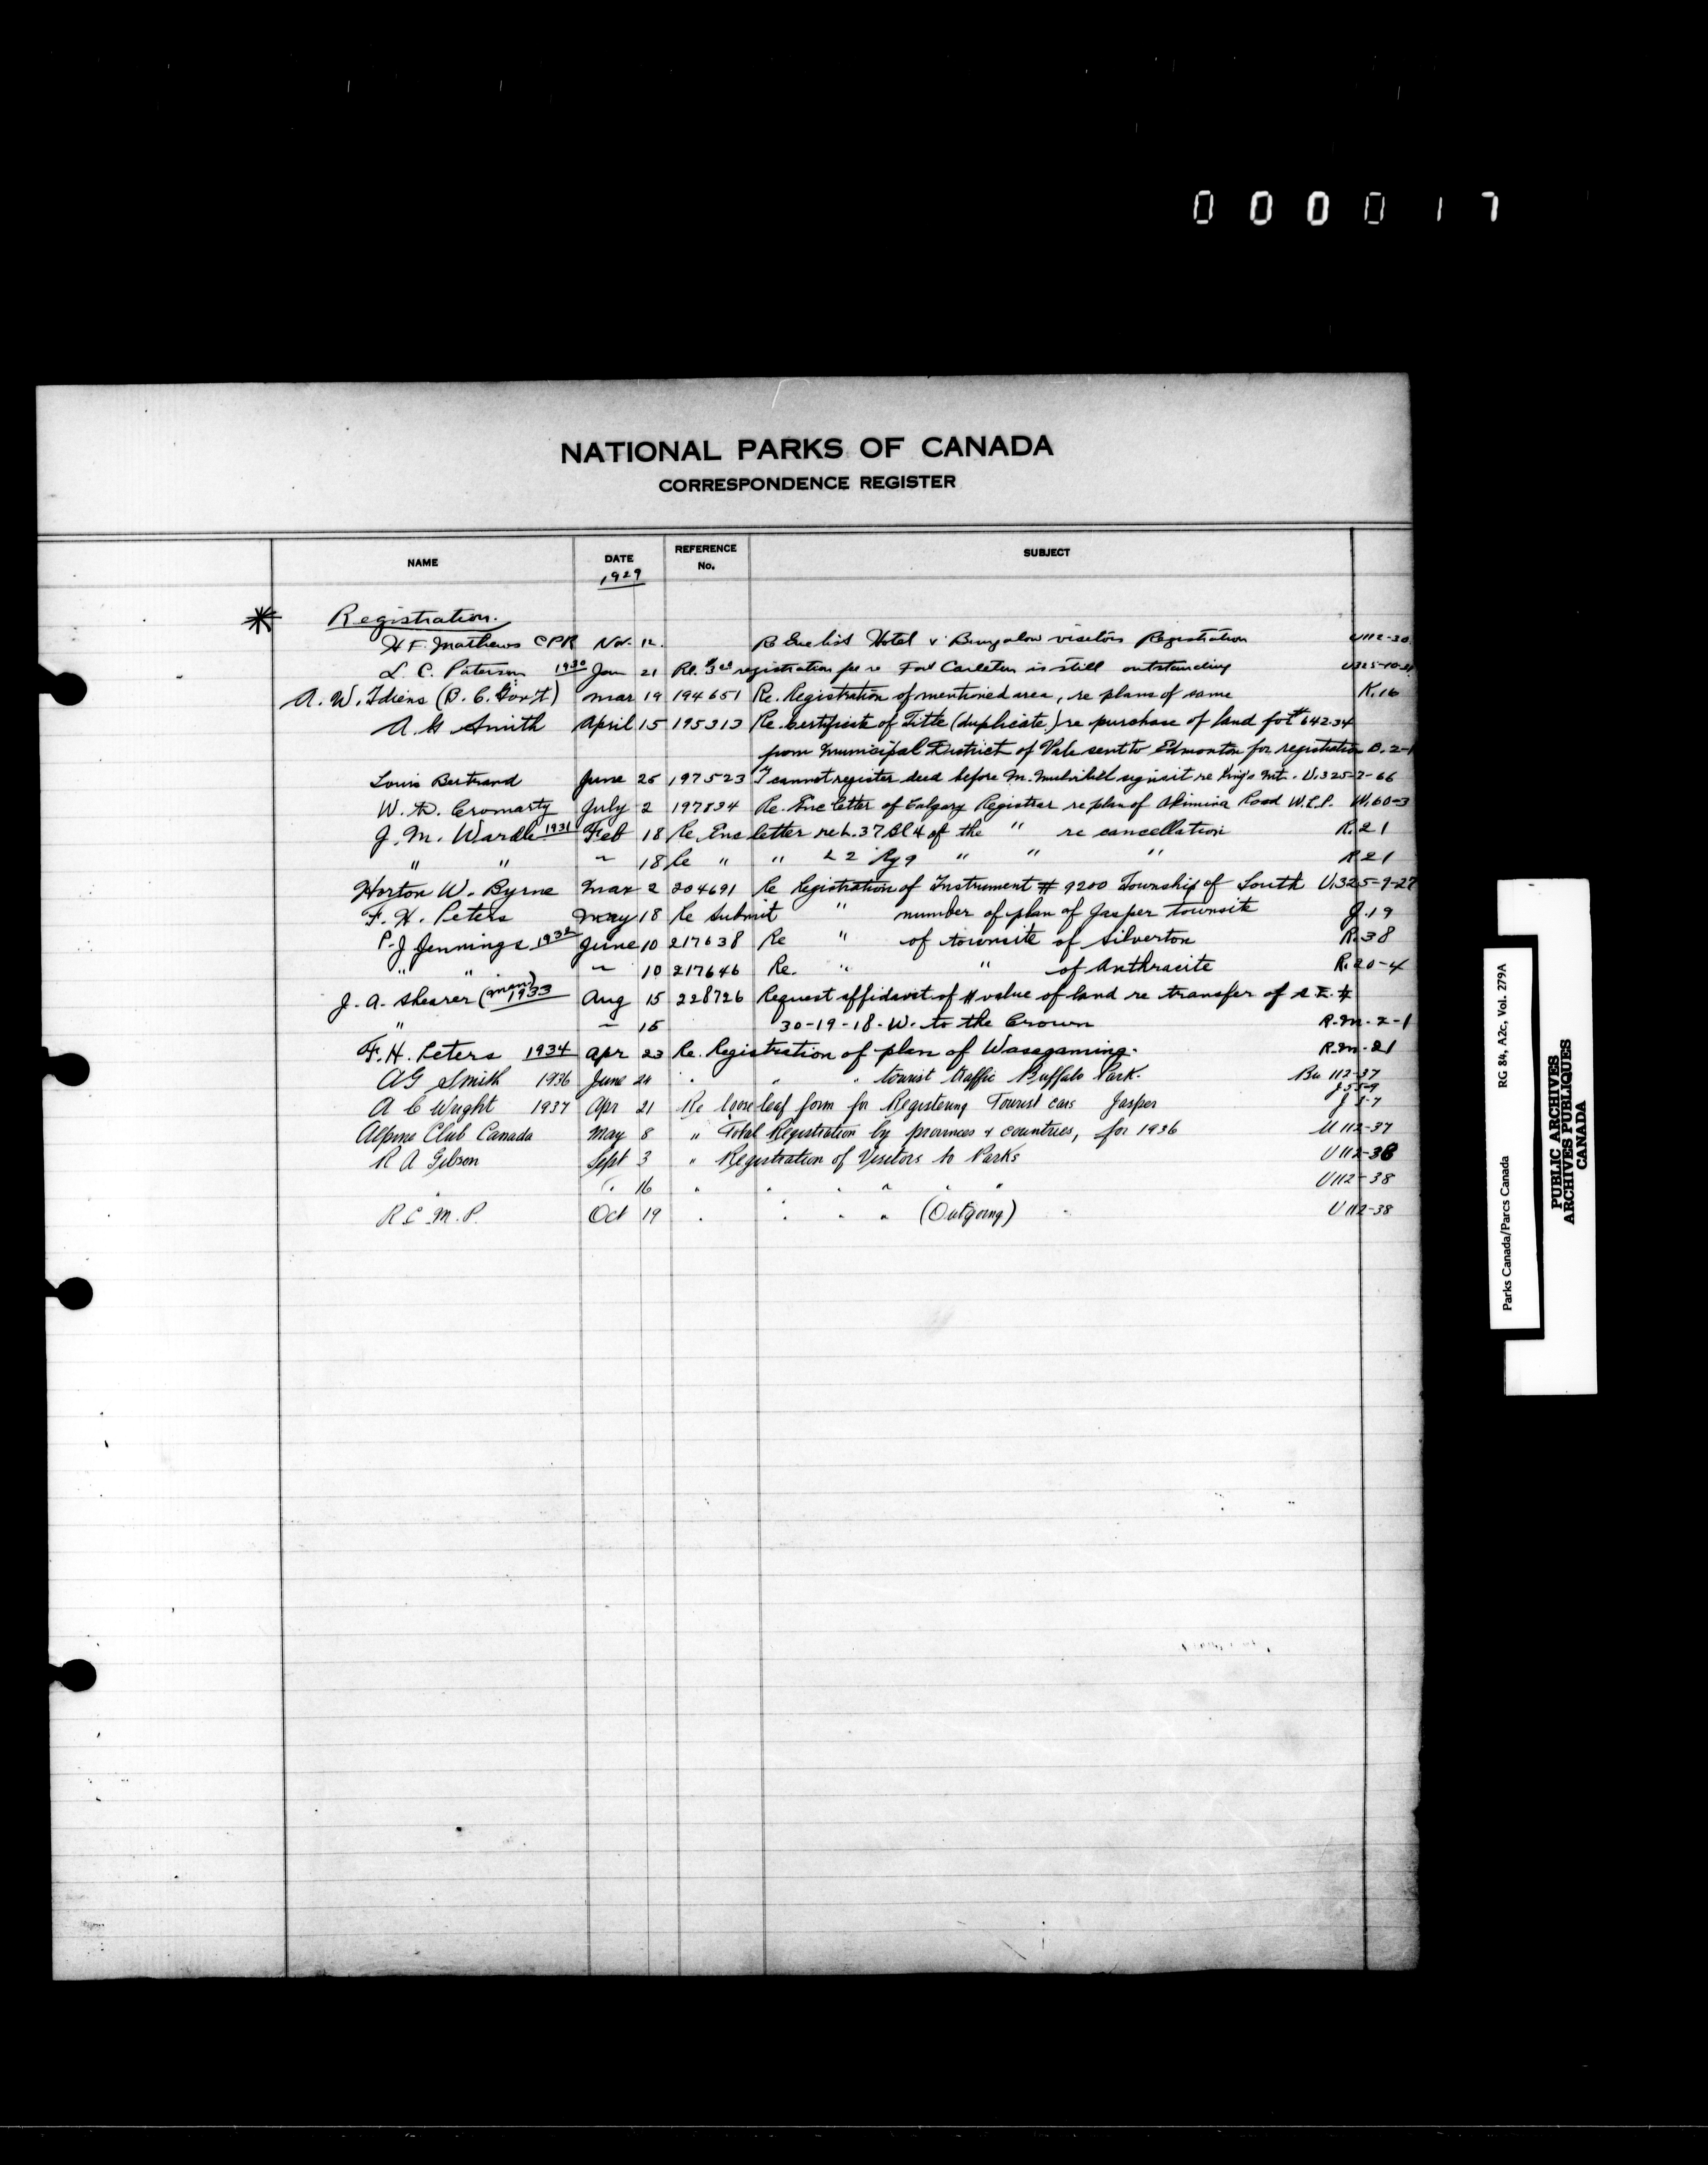 000017
NATIONAL PARKS OF CANADA
CORRESPONDENCE REGISTER
NAME DATE REFERENCE No. SUBJECT
1929
Registration.
H F. Mathews CPR Nov. 12. Re Enc list Hotel & Bungalow visitors Registration U112-30
L. C. Paterson 1930 Jan 21 Re. $3.00 registration fee re Fort Carleton is still outstanding
A. W. Idiens (B. C. Gov't) Mar 19 194651 Re. Registration of mentioned area, re plans of same K.16
A. G Smith April 15 195313 Re. Certificate of Title (duplicate) re purchase of land for # 64234
from Municipal District of Vale sent to Edmonton for registration B.2-1
Louis Bertrand June 26 197523 I cannot register deed before M. sign it re King's Mt. U.325-7-66
W. D. Cromarty July 2 197834 Re. Enc letter of Calgary Registrar re plan of Akimina Road W.L.P. W.60-3
J. M. Wardle 1931 Feb 18 Re. Enc letter re L. 37 Bl 4 of the " re cancellation R.21
" " ~ 18 Re " " L 2 " " " R21
Horton W. Byrne Mar 2 204691 Re Registration of Instrument # 9200 Township of South U.325-9-27
F. H. Peters May 18 Re Submit " number of plan of Jasper townsite J.19
P. J Jennings 1932 June 10 217638 Re " of townsite of Silverton R.38
" " ~ 10 217646 Re. " " of Anthracite R.20-4
J. A. Shearer (Man) 1933 Aug 15 228726 Request affidavit of # value of land re transfer of S.E. 4
" ~ 15 30-19-18-W. to the Crown R.M.-2-1
F. H. Peters 1934 Apr 23 Re. Registration of plan of Wasagaming. R.M.-21
A G Smith 1936 June 24 " " " tourist traffic Buffalo Park. Bu 112-37
J 55-9
A C Wright 1937 Apr 21 Re loose leaf form for Registering Tourist cars Jasper J 5-7
Alpine Club Canada May 8 " Total Registration by provinces & countries, for 1936 U 112-37
R A Gibson Sept 3 " Registration of Visitors to Parks U 112-38
" " 16 " " " " " " U112-38
R C M. P. Oct 19 " " " " (Outgoing) " U112-38
Parks Canada/Parcs Canada RG 84, A2c, Vol. 279A
PUBLIC ARCHIVES
ARCHIVES PUBLIQUES
CANADA